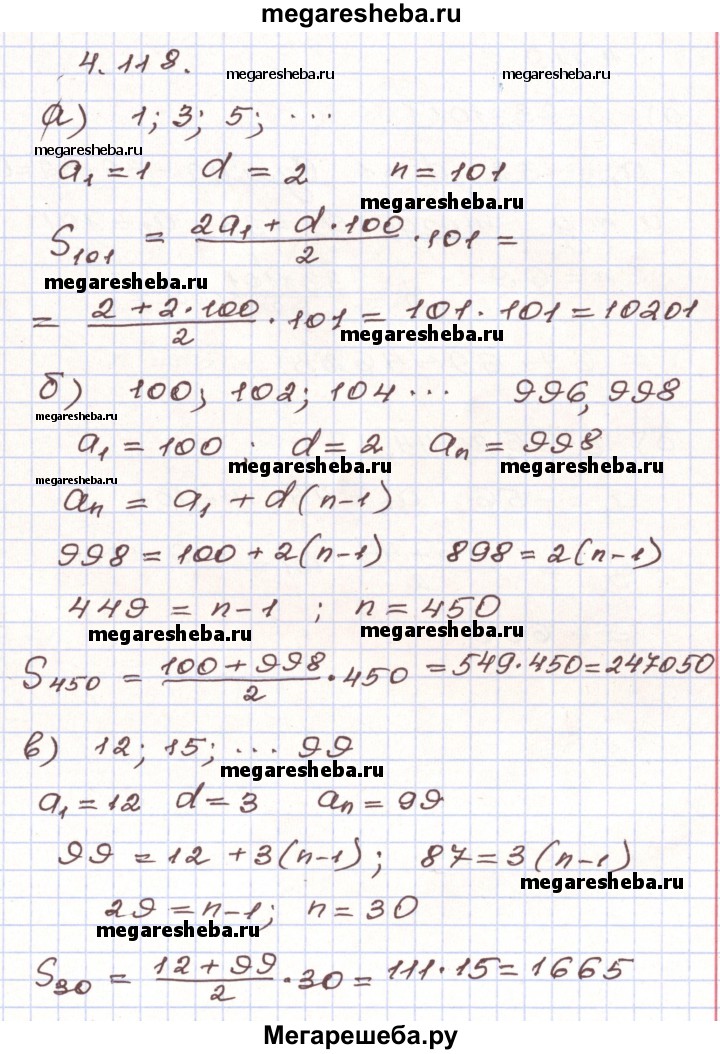 megaresheba.ru
4.118.
megaresheba.ru megaresheba.ru
а) 1; 3; 5; ...
megaresheba.ru
a₁ = 1 d = 2 n = 101
megaresheba.ru
S₁₀₁ = (2a₁ + d·100)/2 · 101 =
megaresheba.ru
= (2 + 2·100)/2 · 101 = 101·101 = 10201
megaresheba.ru
б) 100; 102; 104 ... 996, 998
megaresheba.ru
a₁ = 100 ; d = 2 aₙ = 998
megaresheba.ru megaresheba.ru
megaresheba.ru
aₙ = a₁ + d(n-1)
998 = 100 + 2(n-1) 898 = 2(n-1)
449 = n-1 ; n = 450
megaresheba.ru megaresheba.ru
S₄₅₀ = (100 + 998)/2 · 450 = 549·450 = 247050
в) 12; 15; ... 99
megaresheba.ru
a₁ = 12 d = 3 aₙ = 99
99 = 12 + 3(n-1); 87 = 3(n-1)
megaresheba.ru
29 = n-1; n = 30
megaresheba.ru
S₃₀ = (12 + 99)/2 · 30 = 111·15 = 1665
Мегарешеба.ру